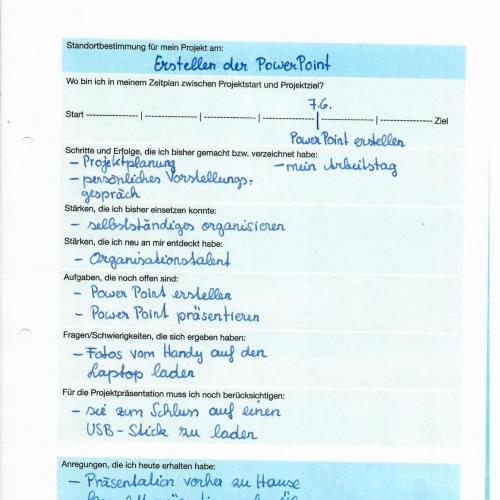 Standortbestimmung für mein Projekt am:
Erstellen der PowerPoint
Wo bin ich in meinem Zeitplan zwischen Projektstart und Projektziel?
7.6.
Start ---------------|---------------|---------------|---------------|--------------- Ziel
PowerPoint erstellen
Schritte und Erfolge, die ich bisher gemacht bzw. verzeichnet habe:
- Projektplanung - mein Arbeitstag
- persönliches Vorstellungs-
gespräch
Stärken, die ich bisher einsetzen konnte:
- selbstständiges organisieren
Stärken, die ich neu an mir entdeckt habe:
- Organisationstalent
Aufgaben, die noch offen sind:
- Power Point erstellen
- Power Point präsentieren
Fragen/Schwierigkeiten, die sich ergeben haben:
- Fotos vom Handy auf den
Laptop laden
Für die Projektpräsentation muss ich noch berücksichtigen:
- sie zum Schluss auf einen
USB-Stick zu laden
Anregungen, die ich heute erhalten habe:
- Präsentation vorher zu Hause